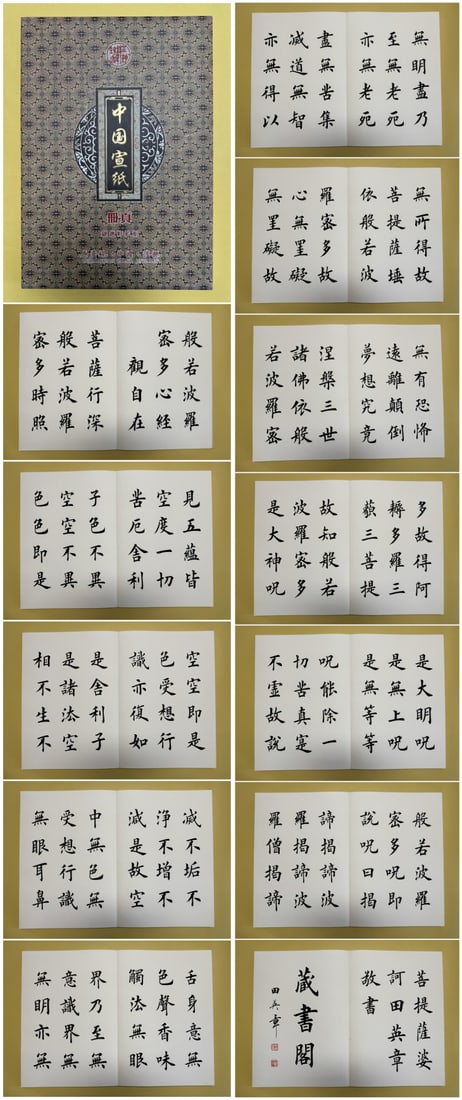 中国宣纸
册页
般若波羅
密多心經
觀自在
菩薩行深
般若波羅
密多時照
見五蘊皆
空度一切
苦厄舍利
子色不異
空空不異
色色即是
空空即是
色受想行
識亦復如
是舍利子
是諸法空
相不生不
滅不垢不
淨不增不
減是故空
中無色無
受想行識
無眼耳鼻
舌身意無
色聲香味
觸法無眼
界乃至無
意識界無
無明亦無
無明盡乃
至無老死
亦無老死
盡無苦集
滅道無智
亦無得以
無所得故
菩提薩埵
依般若波
羅密多故
心無罣礙
無罣礙故
無有恐怖
遠離顛倒
夢想究竟
涅槃三世
諸佛依般
若波羅密
多故得阿
耨多羅三
藐三菩提
故知般若
波羅密多
是大神咒
是大明咒
是無上咒
是無等等
咒能除一
切苦真寔
不虛故說
般若波羅
密多咒即
說咒曰揭
諦揭諦波
羅揭諦波
羅僧揭諦
菩提薩婆
訶田英章
敬書
藏書閣
田英章